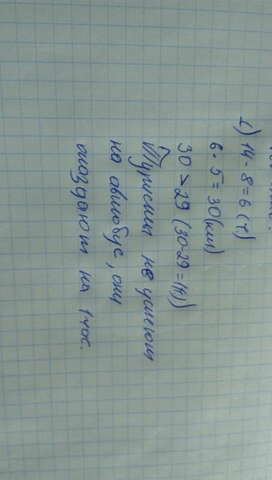 1) 14 - 8 = 6 (ч)
6 · 5 = 30 (км)
30 > 29 (30-29=1(ч))
Туристы не успеют
на автобус, они
опаздают на 1 час.